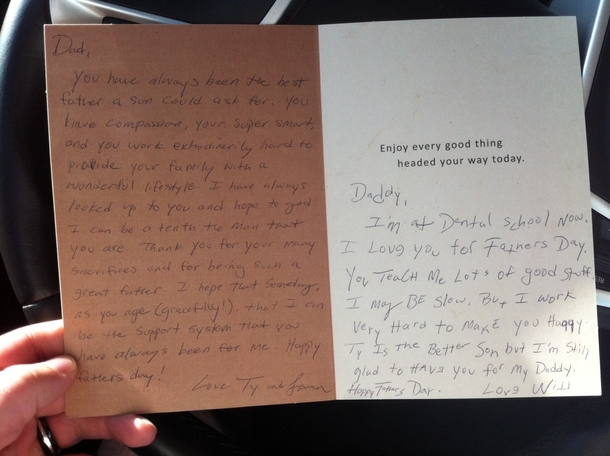 Dad,
You have always been the best
father a son could ask for. You
have compassion, your super smart,
and you work extrodinerily hard to
provide your family with a
wonderful lifestyle. I have always
looked up to you and hope to god
I can be a tenth the man that
you are. Thank you for your many
sacrifices and for being such a
great father. I hope that someday,
as you age (gracefully!), that I can
be the support system that you
have always been for me. Happy
fathers day!
Love Ty and
Enjoy every good thing
headed your way today.
Daddy,
I'm at Dental school Now.
I Love you for Fathers Day.
You Teach Me Lots of good stuff.
I may BE Slow. But I work
Very Hard to Make you Happy
Ty Is the Better Son but I'm Still
glad to Have you for My Daddy.
Happy Fathers Day. Love Will